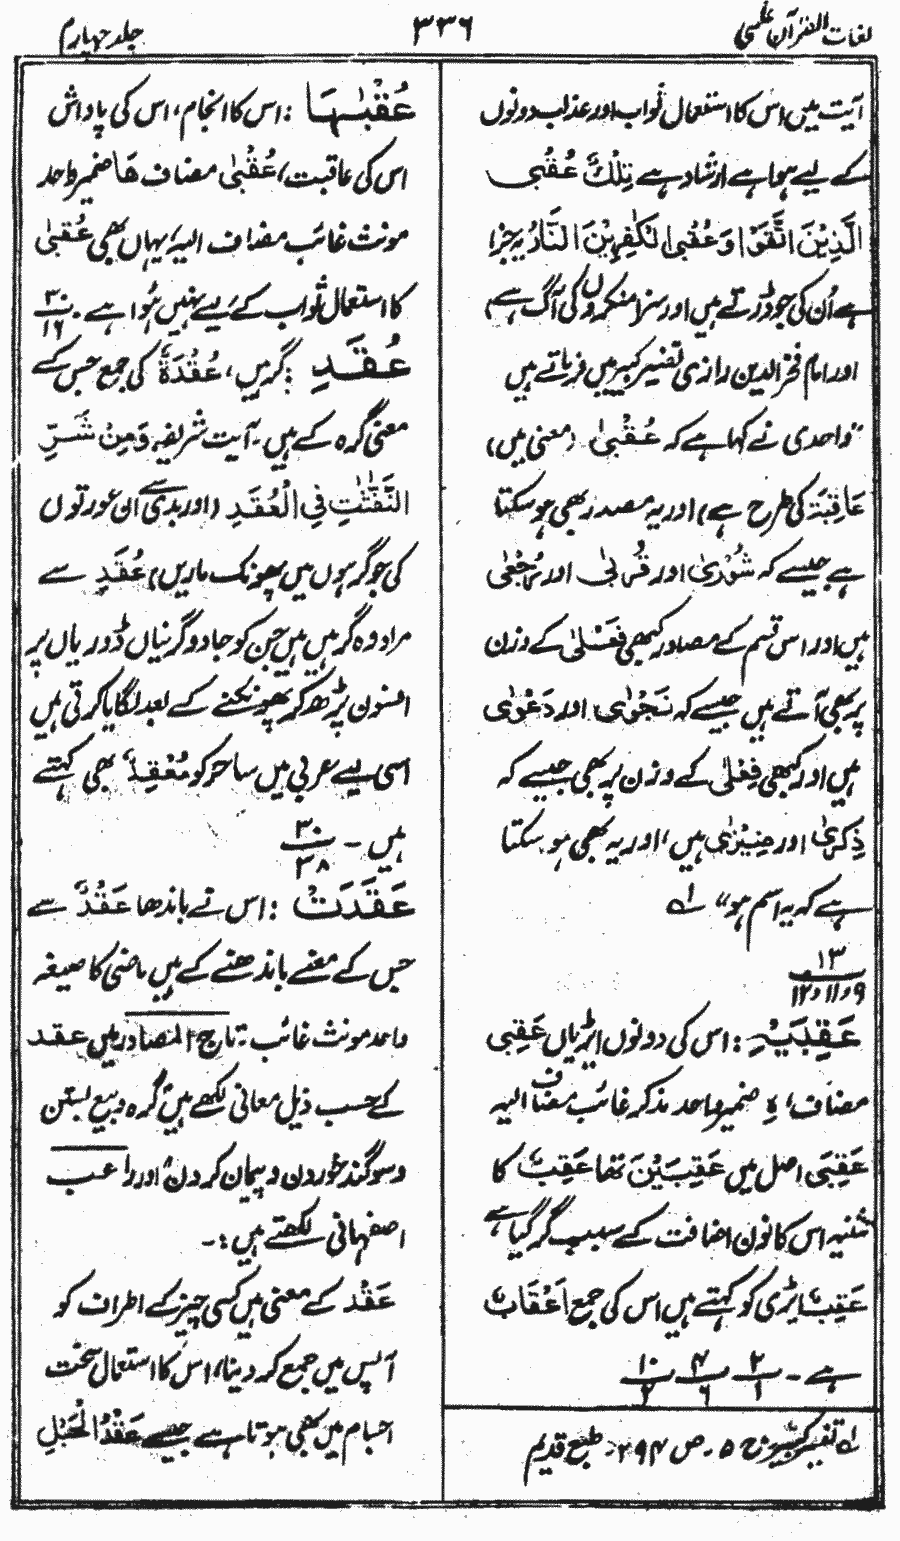 لغات القرآن علمی
۳۳۶
جلد چہارم
آیت میں اس کا استعمال ثواب اور عذاب دونوں
کے لیے ہوا ہے ارشاد ہے تِلْكَ عُقْبَى
الَّذِيْنَ اتَّقَوْا وَعُقْبَى الْكٰفِرِيْنَ النَّارُ یہ جزا
ہے اُن کی جو ڈرتے ہیں اور سزا منکروں کی آگ ہے)
اور امام فخر الدین رازی تفسیر کبیر میں فرماتے ہیں
"واحدی نے کہا ہے کہ عُقْبٰى (معنی میں)
عَاقِبَة کی طرح ہے) اور یہ مصدر بھی ہو سکتا
ہے جیسے کہ شُوْرٰى اور قُرْبٰى اور رُجْعٰى
ہیں اور اس قسم کے مصادر کبھی فَعْلٰى کے وزن
پر بھی آتے ہیں جیسے کہ نَجْوٰى اور دَعْوٰى
ہیں اور کبھی فِعْلٰى کے وزن پر بھی جیسے کہ
ذِكْرٰى اور ضِيْزٰى ہیں، اور یہ بھی ہو سکتا
ہے کہ یہ اسم ہو" لہ
۱۳
۹ و ۱۱ و ۱۲
عَقِبَيْهِ : اس کی دونوں ایڑیاں عَقِبَى
مضاف، ہٖ ضمیر واحد مذکر غائب مضاف الیہ
عَقِبَى اصل میں عَقِبَيْنَ تھا عَقِبٌ کا
تثنیہ اس کا نون اضافت کے سبب گر گیا ہے
عَقِبٌ ایڑی کو کہتے ہیں اس کی جمع اَعْقَابٌ
ہے - ۲/۱ ۴/۶ ۱۰/۲
لہ تفسیر کبیر ج ۵ - ص ۲۹۴ - طبع قدیم
عُقْبٰہَا : اس کا انجام، اس کی پاداش
اس کی عاقبت، عُقْبٰى مضاف هَا ضمیر واحد
مونث غائب مضاف الیہ، یہاں بھی عُقبٰى
کا استعمال ثواب کے لیے نہیں ہُوا ہے - ۳۰/۱۶
عُقَدِ : گرہیں، عُقْدَةٌ کی جمع جس کے
معنی گرہ کے ہیں - آیت شریفہ وَمِنْ شَرِّ
النَّفّٰثٰتِ فِي الْعُقَدِ (اور بدی سے ان عورتوں
کی جو گرہوں میں پھونک ماریں) عُقَدِ سے
مراد وہ گرہیں ہیں جن کو جادوگرنیاں ڈوریاں پر
افسون پڑھ کر پھونکنے کے بعد لگایا کرتی ہیں
اسی لیے عربی میں ساحر کو مُعْقِدٌ بھی کہتے
ہیں - ۳۰/۳۸
عَقَدَتْ : اس نے باندھا عَقْدٌ سے
جس کے معنے باندھنے کے ہیں ماضی کا صیغہ
واحد مونث غائب - تاج المصادر میں عقد
کے حسب ذیل معانی لکھے ہیں گرہ و بیع بستن
و سوگند خوردن و پیمان کردن اور راغب
اصفہانی لکھتے ہیں :-
عَقْد کے معنی ہیں کسی چیز کے اطراف کو
آپس میں جمع کر دینا، اس کا استعمال سخت
اجسام میں بھی ہوتا ہے جیسے عَقْدُ الْحَبْلِ